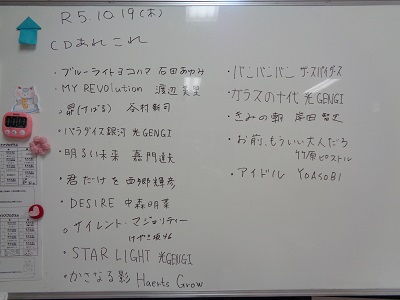 R5.10.19(木)
CDあれこれ
・ブルーライトヨコハマ 石田あゆみ
・MY REVOlution 渡辺美里
・昴(すばる) 谷村新司
・パラダイス銀河 光GENGI
・明るい未来 嘉門達夫
・君だけを 西郷輝彦
・DESIRE 中森明菜
。サイレント・マジョリティー
けやき坂46
・STAR LIGHT 光GENGI
・かさなる影 Haerts Grow
・バンバンバン ザ・スパイダース
・ガラスの十代 光GENGI
・きみの朝 岸田智史
・お前、もういい大人だろ
竹原ピストル
・アイドル YOASOBI